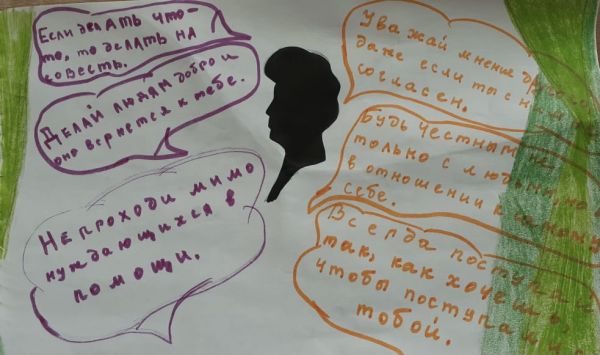 Если делать что-
то, то делать на
совесть.
Делай людям добро и
оно вернется к тебе.
Не проходи мимо
нуждающихся в
помощи.
Уважай мнение другого
даже если ты с ним не
согласен.
Будь честным не
только с людьми, но и
в отношении к самому
себе.
Всегда поступай
так, как хочешь,
чтобы поступали с
тобой.